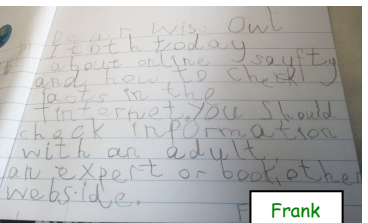 Dear Wise Owl
I toth today
about online sayfty
and how to check
facts in the
internet, you should
check information
with an adult,
an expert or book, other
webside.
Frank